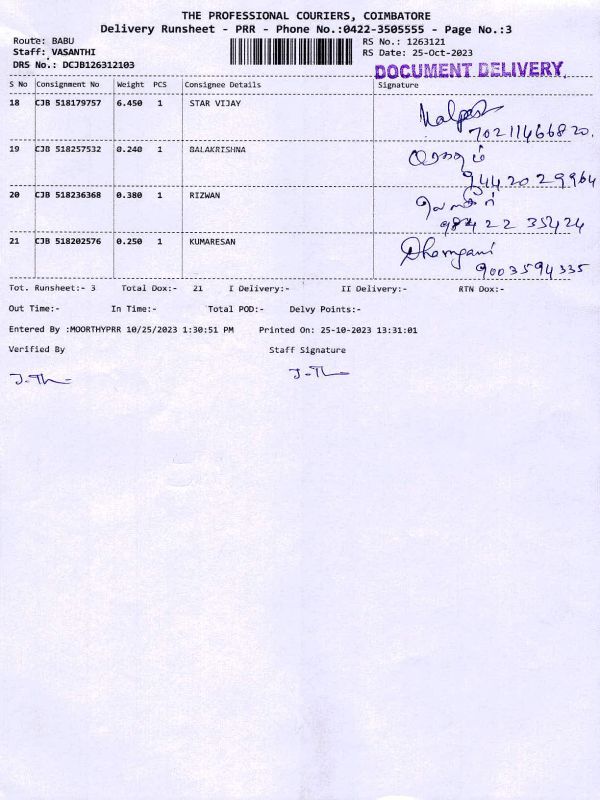 THE PROFESSIONAL COURIERS, COIMBATORE
Delivery Runsheet - PRR - Phone No.:0422-3505555 - Page No.:3
Route: BABU RS No.: 1263121
Staff: VASANTHI RS Date: 25-Oct-2023
DRS No.: DCJB126312103 DOCUMENT DELIVERY.
S No Consignment No Weight PCS Consignee Details Signature
18 CJB 518179757 6.450 1 STAR VIJAY
70211466820.
19 CJB 518257532 0.240 1 BALAKRISHNA
9442029964
20 CJB 518236368 0.380 1 RIZWAN
98422 35424
21 CJB 518202576 0.250 1 KUMARESAN
9003594335
Tot. Runsheet:- 3 Total Dox:- 21 I Delivery:- II Delivery:- RTN Dox:-
Out Time:- In Time:- Total POD:- Delvy Points:-
Entered By :MOORTHYPRR 10/25/2023 1:30:51 PM Printed On: 25-10-2023 13:31:01
Verified By Staff Signature